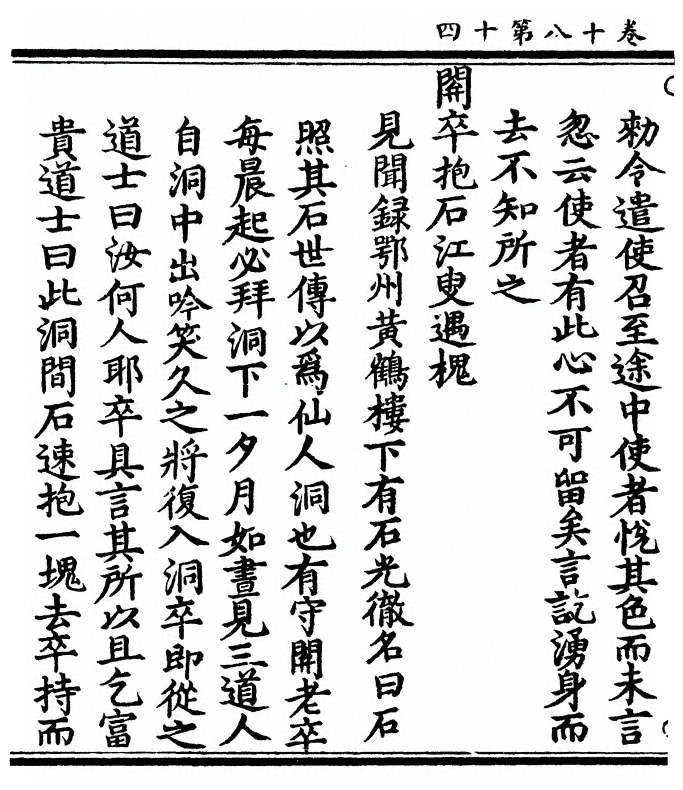 卷十八第十四
勑令遣使召至途中使者悅其色而未言
忽云使者有此心不可留矣言訖湧身而
去不知所之
開卒抱石江叟遇槐
見聞録鄂州黃鶴樓下有石光徹名曰石
照其石世傳以爲仙人洞也有守開老卒
每晨起必拜洞下一夕月如晝見三道人
自洞中出吟笑久之將復入洞卒即從之
道士曰汝何人耶卒具言其所以且乞富
貴道士曰此洞間石速抱一塊去卒持而